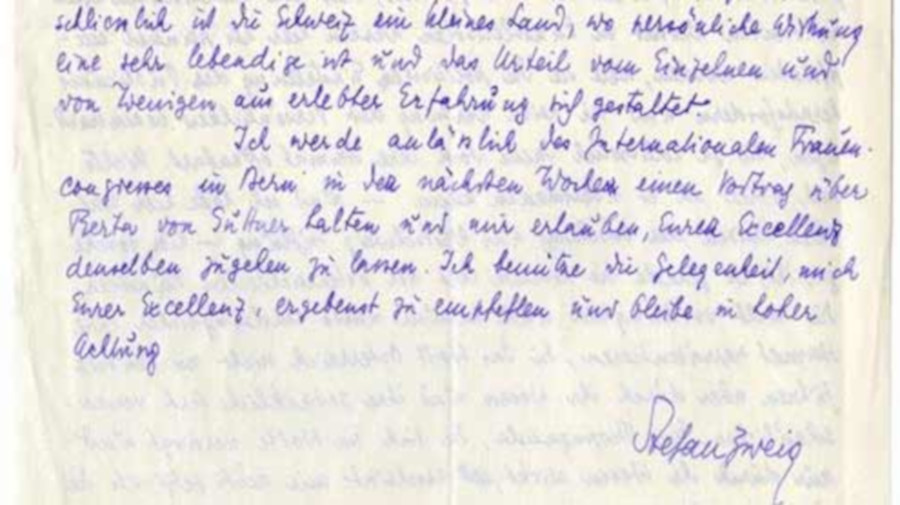 schliesslich ist die Schweiz ein kleines Land, wo persönliche Wirkung
eine sehr lebendige ist und das Urteil vom Einzelnen und
von Wenigen aus erlebter Erfahrung sich gestaltet.
Ich werde anlässlich des Internationalen Frauen-
congresses in Bern in den nächsten Wochen einen Vortrag über
Berta von Suttner halten und mir erlauben, Eurer Excellenz
denselben zugehen zu lassen. Ich benütze die Gelegenheit, mich
Eurer Excellenz, ergebenst zu empfehlen und bleibe in hoher
Achtung
Stefan Zweig